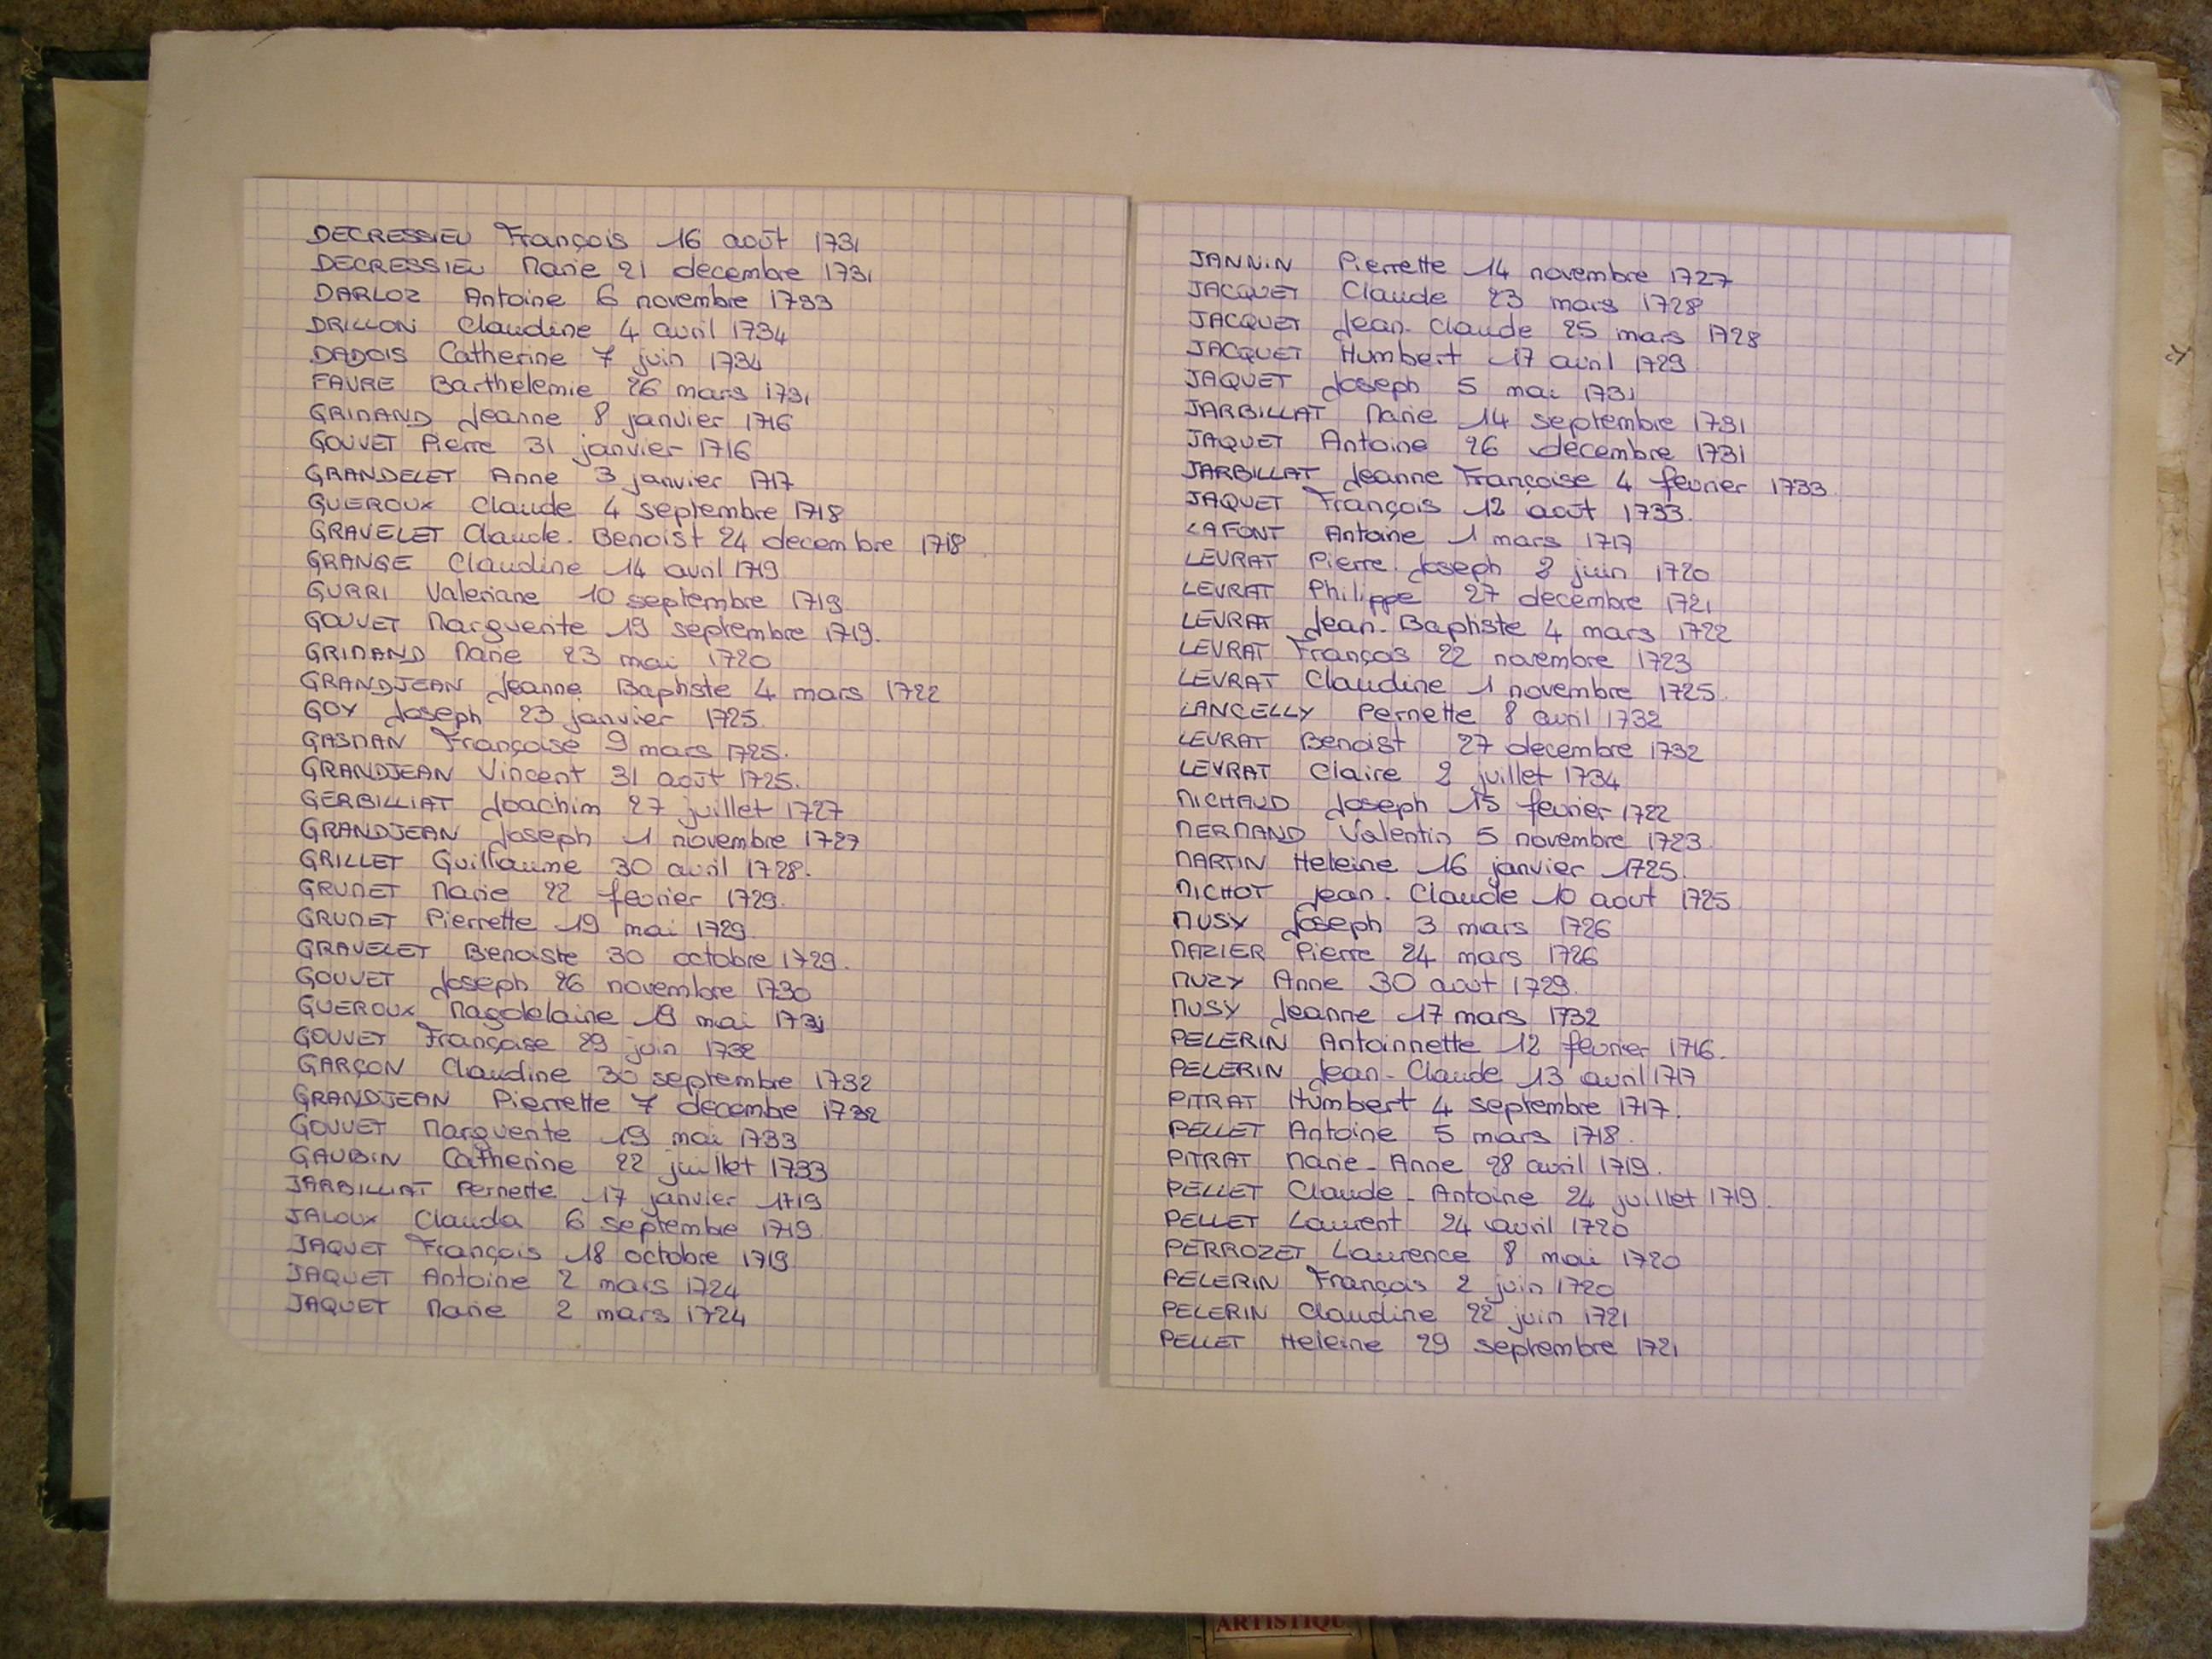 DECRESSIEU François 16 août 1731
DECRESSIEU Marie 21 decembre 1731
DARLOZ Antoine 6 novembre 1733
DRILLON Claudine 4 avril 1734
DADOIS Catherine 7 juin 1734
FAVRE Barthelemie 26 mars 1731
GRIMAND Jeanne 8 janvier 1716
GOUVET Pierre 31 janvier 1716
GRANDELET Anne 3 janvier 1717
GUEROUX Claude 4 septembre 1718
GRAVELET Claude. Benoist 24 decembre 1718
GRANGE Claudine 14 avril 1719
GURRI Valeriane 10 septembre 1719
GOUVET Marguerite 19 septembre 1719.
GRIMAND Marie 23 mai 1720
GRANDJEAN Jeanne Baptiste 4 mars 1722
GOY Joseph 23 janvier 1725.
GASMAN Françoise 9 mars 1725.
GRANDJEAN Vincent 31 août 1725.
GERBILLIAT Joachim 27 juillet 1727
GRANDJEAN Joseph 1 novembre 1727
GRILLET Guillaume 30 avril 1728.
GRUMET Marie 22 fevrier 1729.
GRUMET Pierrette 19 mai 1729.
GRAVELET Benoiste 30 octobre 1729.
GOUVET Joseph 26 novembre 1730
GUEROUX Magdelaine 19 mai 1731
GOUVET Françoise 29 juin 1732
GARÇON Claudine 30 septembre 1732
GRANDJEAN Pierrette 7 décembe 1732
GOUVET Marguerite 19 mai 1733
GAUBIN Catherine 22 juillet 1733
JARBILLIAT Pernette 17 janvier 1719
JALOUX Clauda 6 septembre 1719.
JAQUET François 18 octobre 1719
JAQUET Antoine 2 mars 1724
JAQUET Marie 2 mars 1724
JANNIN Pierrette 14 novembre 1727
JACQUET Claude 23 mars 1728
JACQUET Jean-Claude 25 mars 1728
JACQUET Humbert 17 avril 1729
JAQUET Joseph 5 mai 1731
JARBILLAT Marie 14 septembre 1731
JAQUET Antoine 26 décembre 1731
JARBILLAT Jeanne Françoise 4 fevrier 1733
JAQUET François 12 août 1733.
LAFONT Antoine 1 mars 1717
LEVRAT Pierre Joseph 2 juin 1720
LEVRAT Philippe 27 decembre 1721
LEVRAT Jean-Baptiste 4 mars 1722
LEVRAT François 22 novembre 1723
LEVRAT Claudine 1 novembre 1725.
LANCELLY Pernette 8 avril 1732
LEVRAT Benoist 27 decembre 1732
LEVRAT Claire 2 juillet 1734
MICHAUD Joseph 15 fevrier 1722
MERMAND Valentin 5 novembre 1723.
MARTIN Heleine 16 janvier 1725.
MICHOT Jean. Claude 10 aout 1725
MUSY Joseph 3 mars 1726
MAZIER Pierre 24 mars 1726
MUZY Anne 30 aout 1729.
MUSY Jeanne 17 mars 1732
PELERIN Antoinnette 12 fevrier 1716.
PELERIN Jean-Claude 13 avril 1717
PITRAT Humbert 4 septembre 1717.
PELLET Antoine 5 mars 1718.
PITRAT Marie-Anne 28 avril 1719.
PELLET Claude-Antoine 24 juillet 1719.
PELLET Laurent 24 avril 1720
PERROZET Laurence 8 mai 1720
PELERIN François 2 juin 1720
PELERIN Claudine 22 juin 1721
PELLET Heleine 29 septembre 1721